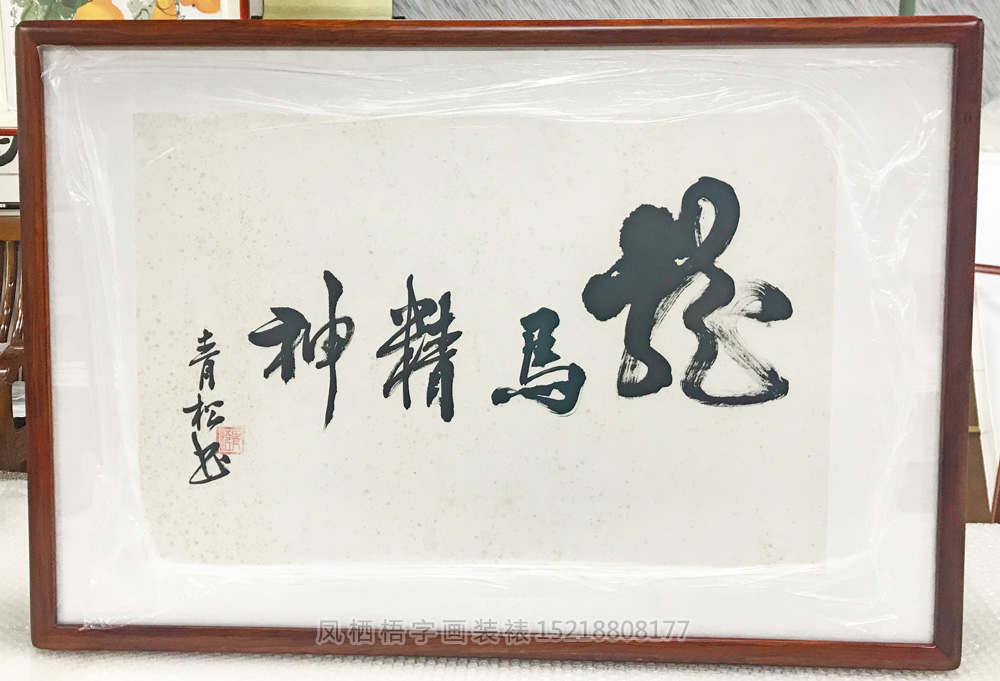 龍馬精神
青松書
凤栖梧字画装裱15218808177